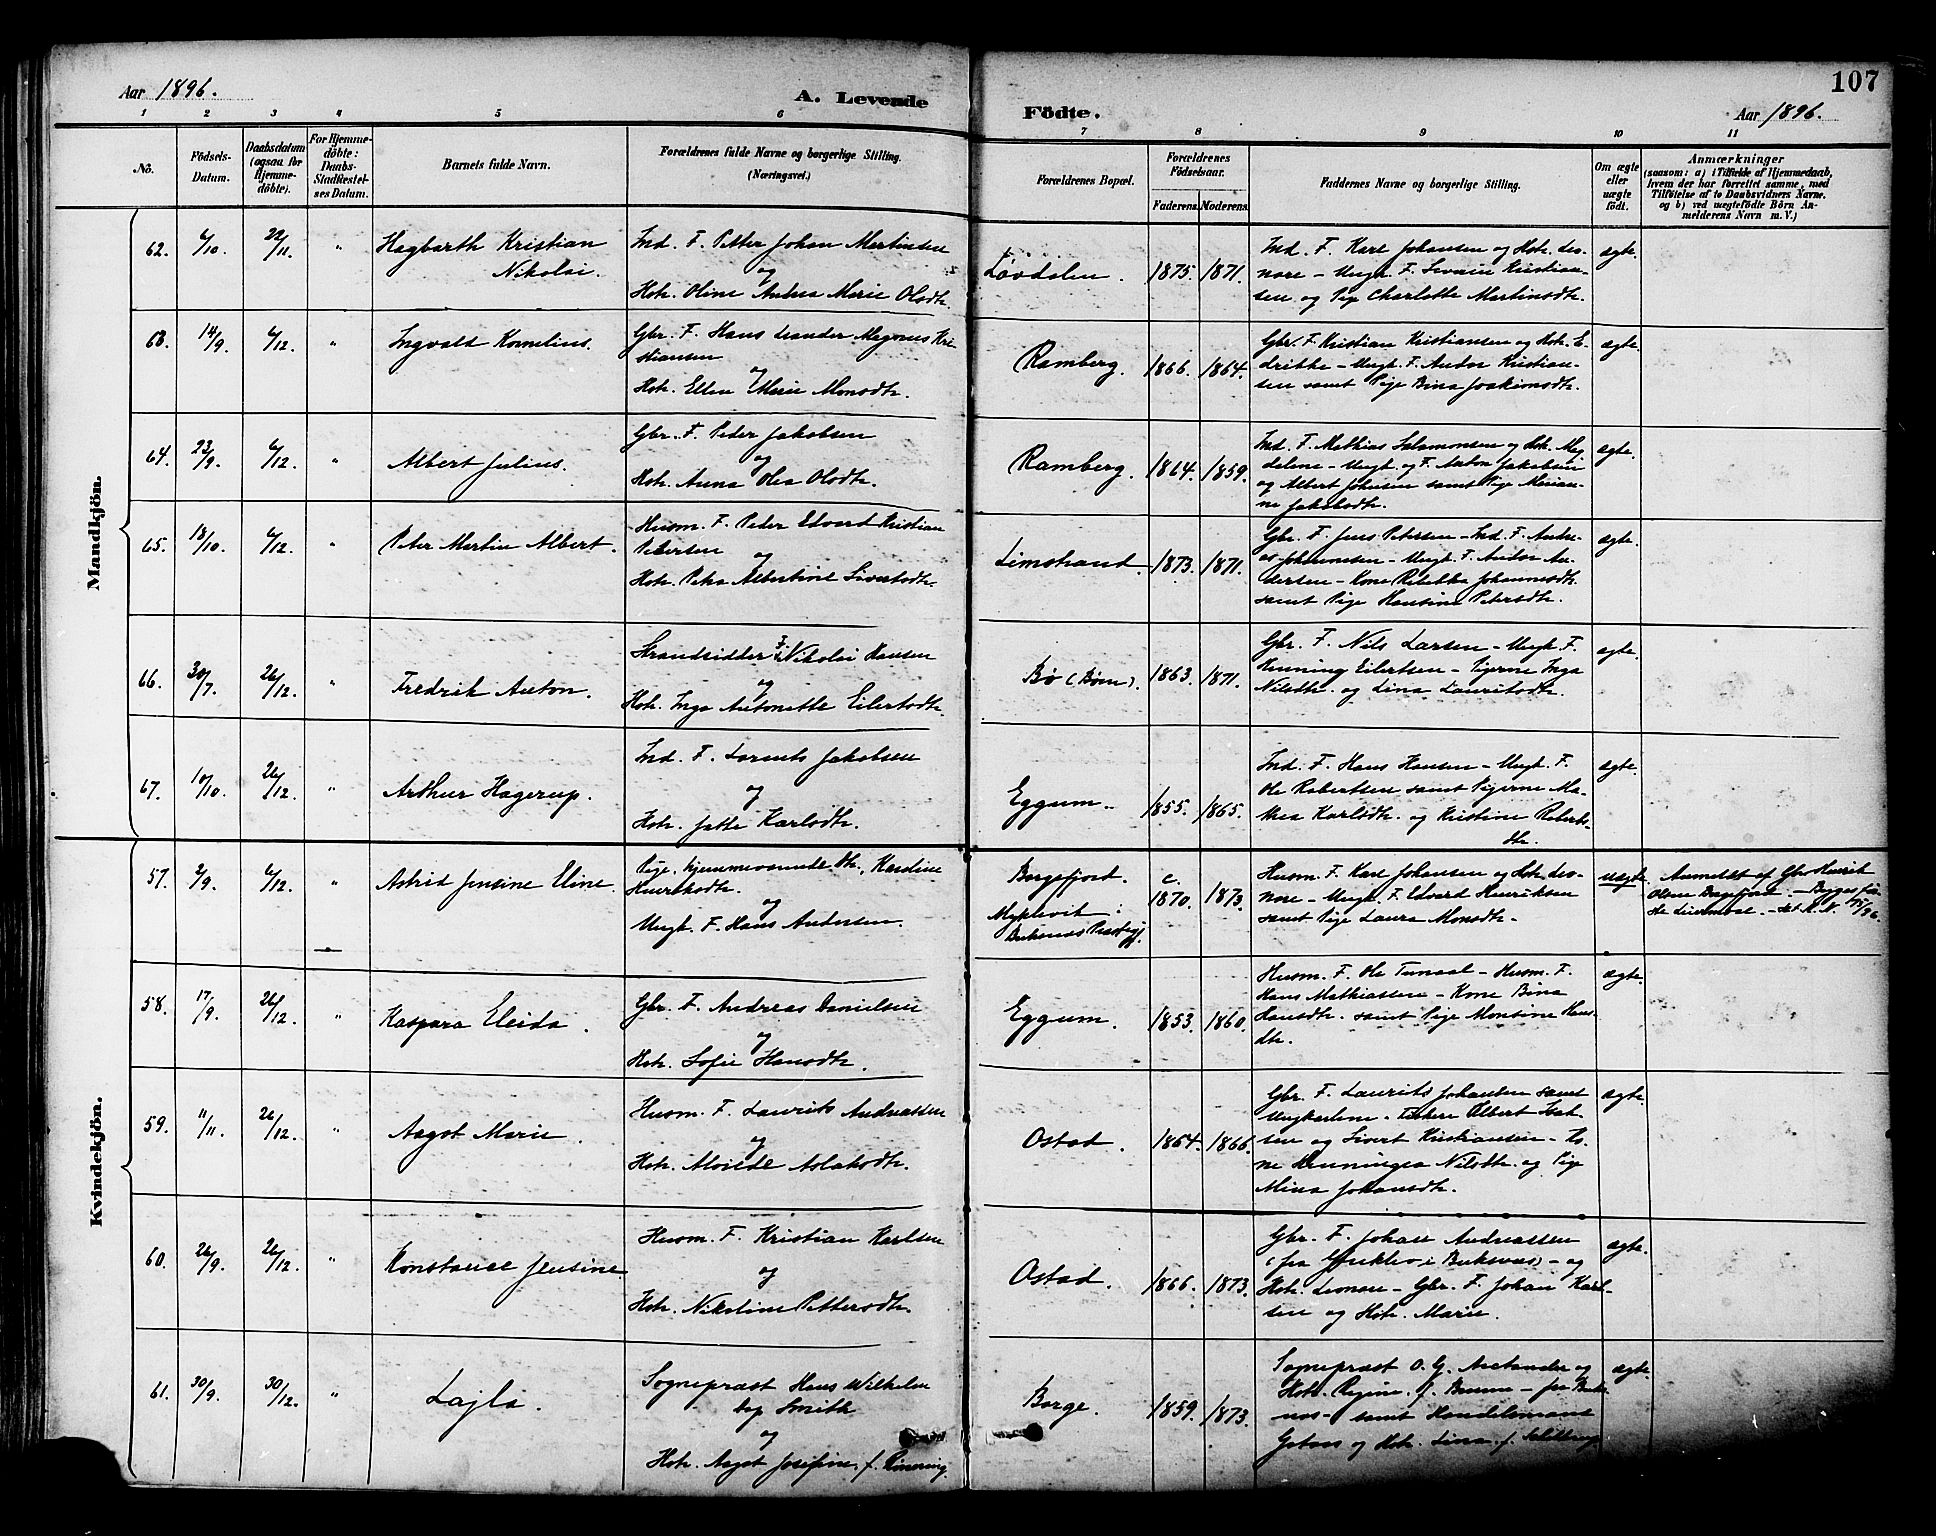 Aar 1896.
A. Levende
Födte.
107
Aar 1896.
1 2 3 4 5 6 7 8 9 10 11
No.
Födsels-
Datum.
Daabsdatum
(ogsaa for
Hjemme-
döbte).
For Hjemme-
döbte:
Daabs-
Stadfæstel-
ses Datum.
Barnets fulde Navn.
Forældrenes fulde Navne og borgerlige Stilling.
(Næringsvei.)
Forældrenes Bopæl.
Forældrenes
Födselsaar.
Faderens. Moderens.
Faddernes Navne og borgerlige Stilling.
Om ægte
eller
uægte
födt.
Anmærkninger
(saasom: a) i Tilfælde af Hjemmedaab,
hvem der har forrettet samme, med
Tilföielse af to Daabsvidners Navne.
og b) ved uægtefödte Börn An-
melderens Navn m. V.)
Mandkjön.
62. 6/10. 22/11. "
Hagbarth Kristian
Nikolai.
Ind. F. Petter Johan Martinsen
og
Hstr. Oline Andrea Marie Olsdtr.
Løvdalen. 1875. 1871.
Ind. F. Karl Johansen og Hstr. Les-
nore - Ungk. F. Kristian-
sen og Pige Charlotte Martinsdtr.
ægte.
63. 14/9. 6/12. "
Ingvald Kornelius.
Gbr. F. Hans Leander Magnus Kri-
stiansen
og
Hstr. Ellen Marie Monsdtr.
Ramberg. 1866. 1864.
Gbr. F. Kristian Kristiansen og Hstr. E-
drikke - Ungk. F. Anton Kristian-
sen samt Pige Bina Joakimsdtr.
ægte.
64. 23/9. 6/12. "
Albert Julius.
Gbr. F. Peder Jakobsen
og
Hstr. Anna Olea Olsdtr.
Ramberg. 1864. 1859.
Ind. F. Mathias Salamonsen og Hstr. Mag-
delene - Ungk. og F. Anton Jakobsen
og Albert Johnsen samt Pige Marian-
ne Jakobsdtr.
ægte.
65. 18/10. 6/12. "
Peter Martin Albert.
Husm. F. Peder Edvard Kristian
Petersen
og
Hstr. Petra Albertine Sivertsdtr.
Limstrand. 1873. 1871.
Gbr. F. Jens Petersen - Ind. F. Andre-
as Johannesen - Ungk. F. Anton An-
dersen - Kone Rebekka Johannesdtr.
samt Pige Hansine Petersdtr.
ægte.
66. 30/7. 26/12.
Fredrik Anton.
Strandsidder F. Nikolai Hansen
og
Hstr. Inga Antonette Eilertsdtr.
Bø (Bøen). 1863. 1871.
Gbr. F. Nils Larsen - Ungk. F.
Henning Eilertsen - Pigerne Inga
Nilsdtr. og Lina Lauritsdtr.
ægte.
67. 10/10. 26/12. "
Arthur Hagerup.
Ind. F. Lorents Jakobsen
og
Hstr. Jette Karlsdtr.
Eggum. 1855. 1865.
Ind. F. Hans Hansen - Ungk. F.
Ole Robertsen samt Pigerne Ma-
thea Karlsdtr. og Kristine Roberts-
dtr.
ægte.
Kvindekjön.
57. 2/9. 6/12. "
Astrid Jensine Eline.
Pige, hjemmeværende Dtr., Karoline
Henriksdtr.
og
Ungk. F. Hans Andersen.
Borgefjord.
Myklevik i
Buksnes Præstegj.
c. 1870. 1873.
Husm. F. Karl Johansen og Hstr. Les-
nore - Ungk. F. Edvard Henriksen
samt Pige Laura Monsdtr.
uægte.
Anmeldt af Gbr. Henrik
Olsen Borgfjord.
58. 17/9. 26/12. "
Kaspara Eleida.
Gbr. F. Andreas Danielsen
og
Hstr. Sofie Hansdtr.
Eggum. 1853. 1860.
Husm. F. Ole Tunaal - Husm. F.
Hans Mathiassen - Kone Bina
Hansdtr. samt Pige Monsine Hans-
dtr.
ægte.
59. 11/11. 26/12. "
Aagot Marie.
Husm. F. Laurits Andreassen
og
Hstr. Alvilde Aslaksdtr.
Ostad. 1864. 1866.
Gbr. F. Laurits Johansen samt
Ungkarlene - Fiskere Albert Isak-
sen og Sivert Kristiansen - Ko-
ne Henningea Nilsdtr. og Pige
Mina Johansdtr.
ægte.
60. 26/9. 26/12. "
Konstance Jensine.
Husm. F. Kristian Karlsen
og
Hstr. Nikoline Pettersdtr.
Ostad. 1866. 1873.
Gbr. F. Johan Andreassen
(fra i Buksnæs) - og
Hstr. Leonore - Gbr. F. Johan Karl-
sen og Hstr. Marie.
ægte.
61. 30/9. 30/12. "
Lajla.
Sognepræst Hans Wilhelm
Smith
og
Hstr. Aagot Josefine, f.
Borge. 1859. 1873.
Sognepræst O. G. og
Hstr. Regine, f. - fra Buks-
næs - samt Handelsmand
og Hstr. Lina, f.
ægte.